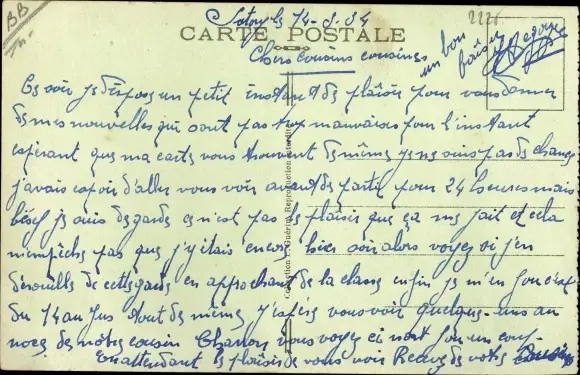 BB
2226
Satory le 14-3-34
CARTE POSTALE
Chers cousins cousines
un bon
baiser
Ce soir je dispose un petit instant de plaisir pour vous donner
de mes nouvelles qui sont pas trop mauvaises pour l'instant
espérant que ma carte vous trouvent de même je ne suis pas de chance
j'avais espoir d'aller vous voir avant de partir pour 24 heures mais
je suis de garde ce n'est pas le plaisir que ça me fait et cela
m'empêche pas que j'y étais encore hier soir alors voyez si j'en
dérouille de cette garde en approchant de la classe enfin je m'en
du 14 au jus tout de même j'espère vous voir quelques-uns au
noce de notre cousin vous voyez ci
En attendant le plaisir de vous voir Recevez de votre cousin
Collection L. Guérin Reproduction interdite